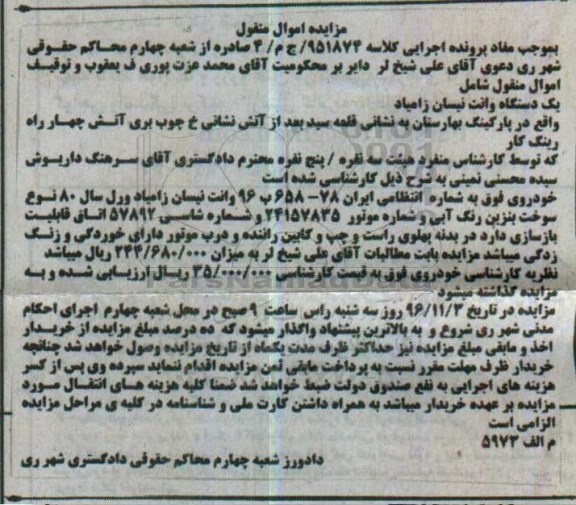 مزایده اموال منقول
بموجب مفاد پرونده اجرایی کلاسه ۹۵۱۸۷۴/ ج م/ ۴ صادره از شعبه چهارم محاکم حقوقی
شهر ری دعوی آقای علی شیخ لر دایر بر محکومیت آقای محمد عزت پوری ف یعقوب و توقیف
اموال منقول شامل
یک دستگاه وانت نیسان زامیاد
واقع در پارکینگ بهارستان به نشانی قلعه سید بعد از آتش نشانی خ چوب بری آتش چهار راه
رینگ کار
که توسط کارشناس منفرد هیئت سه نفره / پنج نفره محترم دادگستری آقای سرهنگ داریوش
سیده محسنی نمینی به شرح ذیل کارشناسی شده است
خودروی فوق به شماره انتظامی ایران ۷۸- ۶۵۸ ب ۹۶ وانت نیسان زامیاد ورل سال ۸۰ نوع
سوخت بنزین رنگ آبی و شماره موتور ۲۴۱۵۷۸۳۵ و شماره شاسی ۵۷۸۹۲ اتاق قابلیت
بازسازی دارد در بدنه پهلوی راست و چپ و کابین راننده و درب موتور دارای خوردگی و زنگ
زدگی میباشد مزایده بابت مطالبات آقای علی شیخ لر به میزان ۲۴۴/۶۸۰/۰۰۰ ریال میباشد
نظریه کارشناسی خودروی فوق به قیمت کارشناسی ۳۵/۰۰۰/۰۰۰ ریال ارزیابی شده و به
مزایده گذاشته میشود
مزایده در تاریخ ۹۶/۱۱/۳ روز سه شنبه راس ساعت ۹ صبح در محل شعبه چهارم اجرای احکام
مدنی شهر ری شروع و به بالاترین پیشنهاد واگذار میشود که ده درصد مبلغ مزایده از خریدار
اخذ و مابقی مبلغ مزایده نیز حداکثر ظرف مدت یکماه از تاریخ مزایده وصول خواهد شد چنانچه
خریدار ظرف مهلت مقرر نسبت به پرداخت مابقی ثمن مزایده اقدام ننماید سپرده وی پس از کسر
هزینه های اجرایی به نفع صندوق دولت ضبط خواهد شد ضمنا کلیه هزینه های انتقال مورد
مزایده بر عهده خریدار میباشد به همراه داشتن کارت ملی و شناسنامه در کلیه ی مراحل مزایده
الزامی است
م الف ۵۹۷۳
دادورز شعبه چهارم محاکم حقوقی دادگستری شهر ری